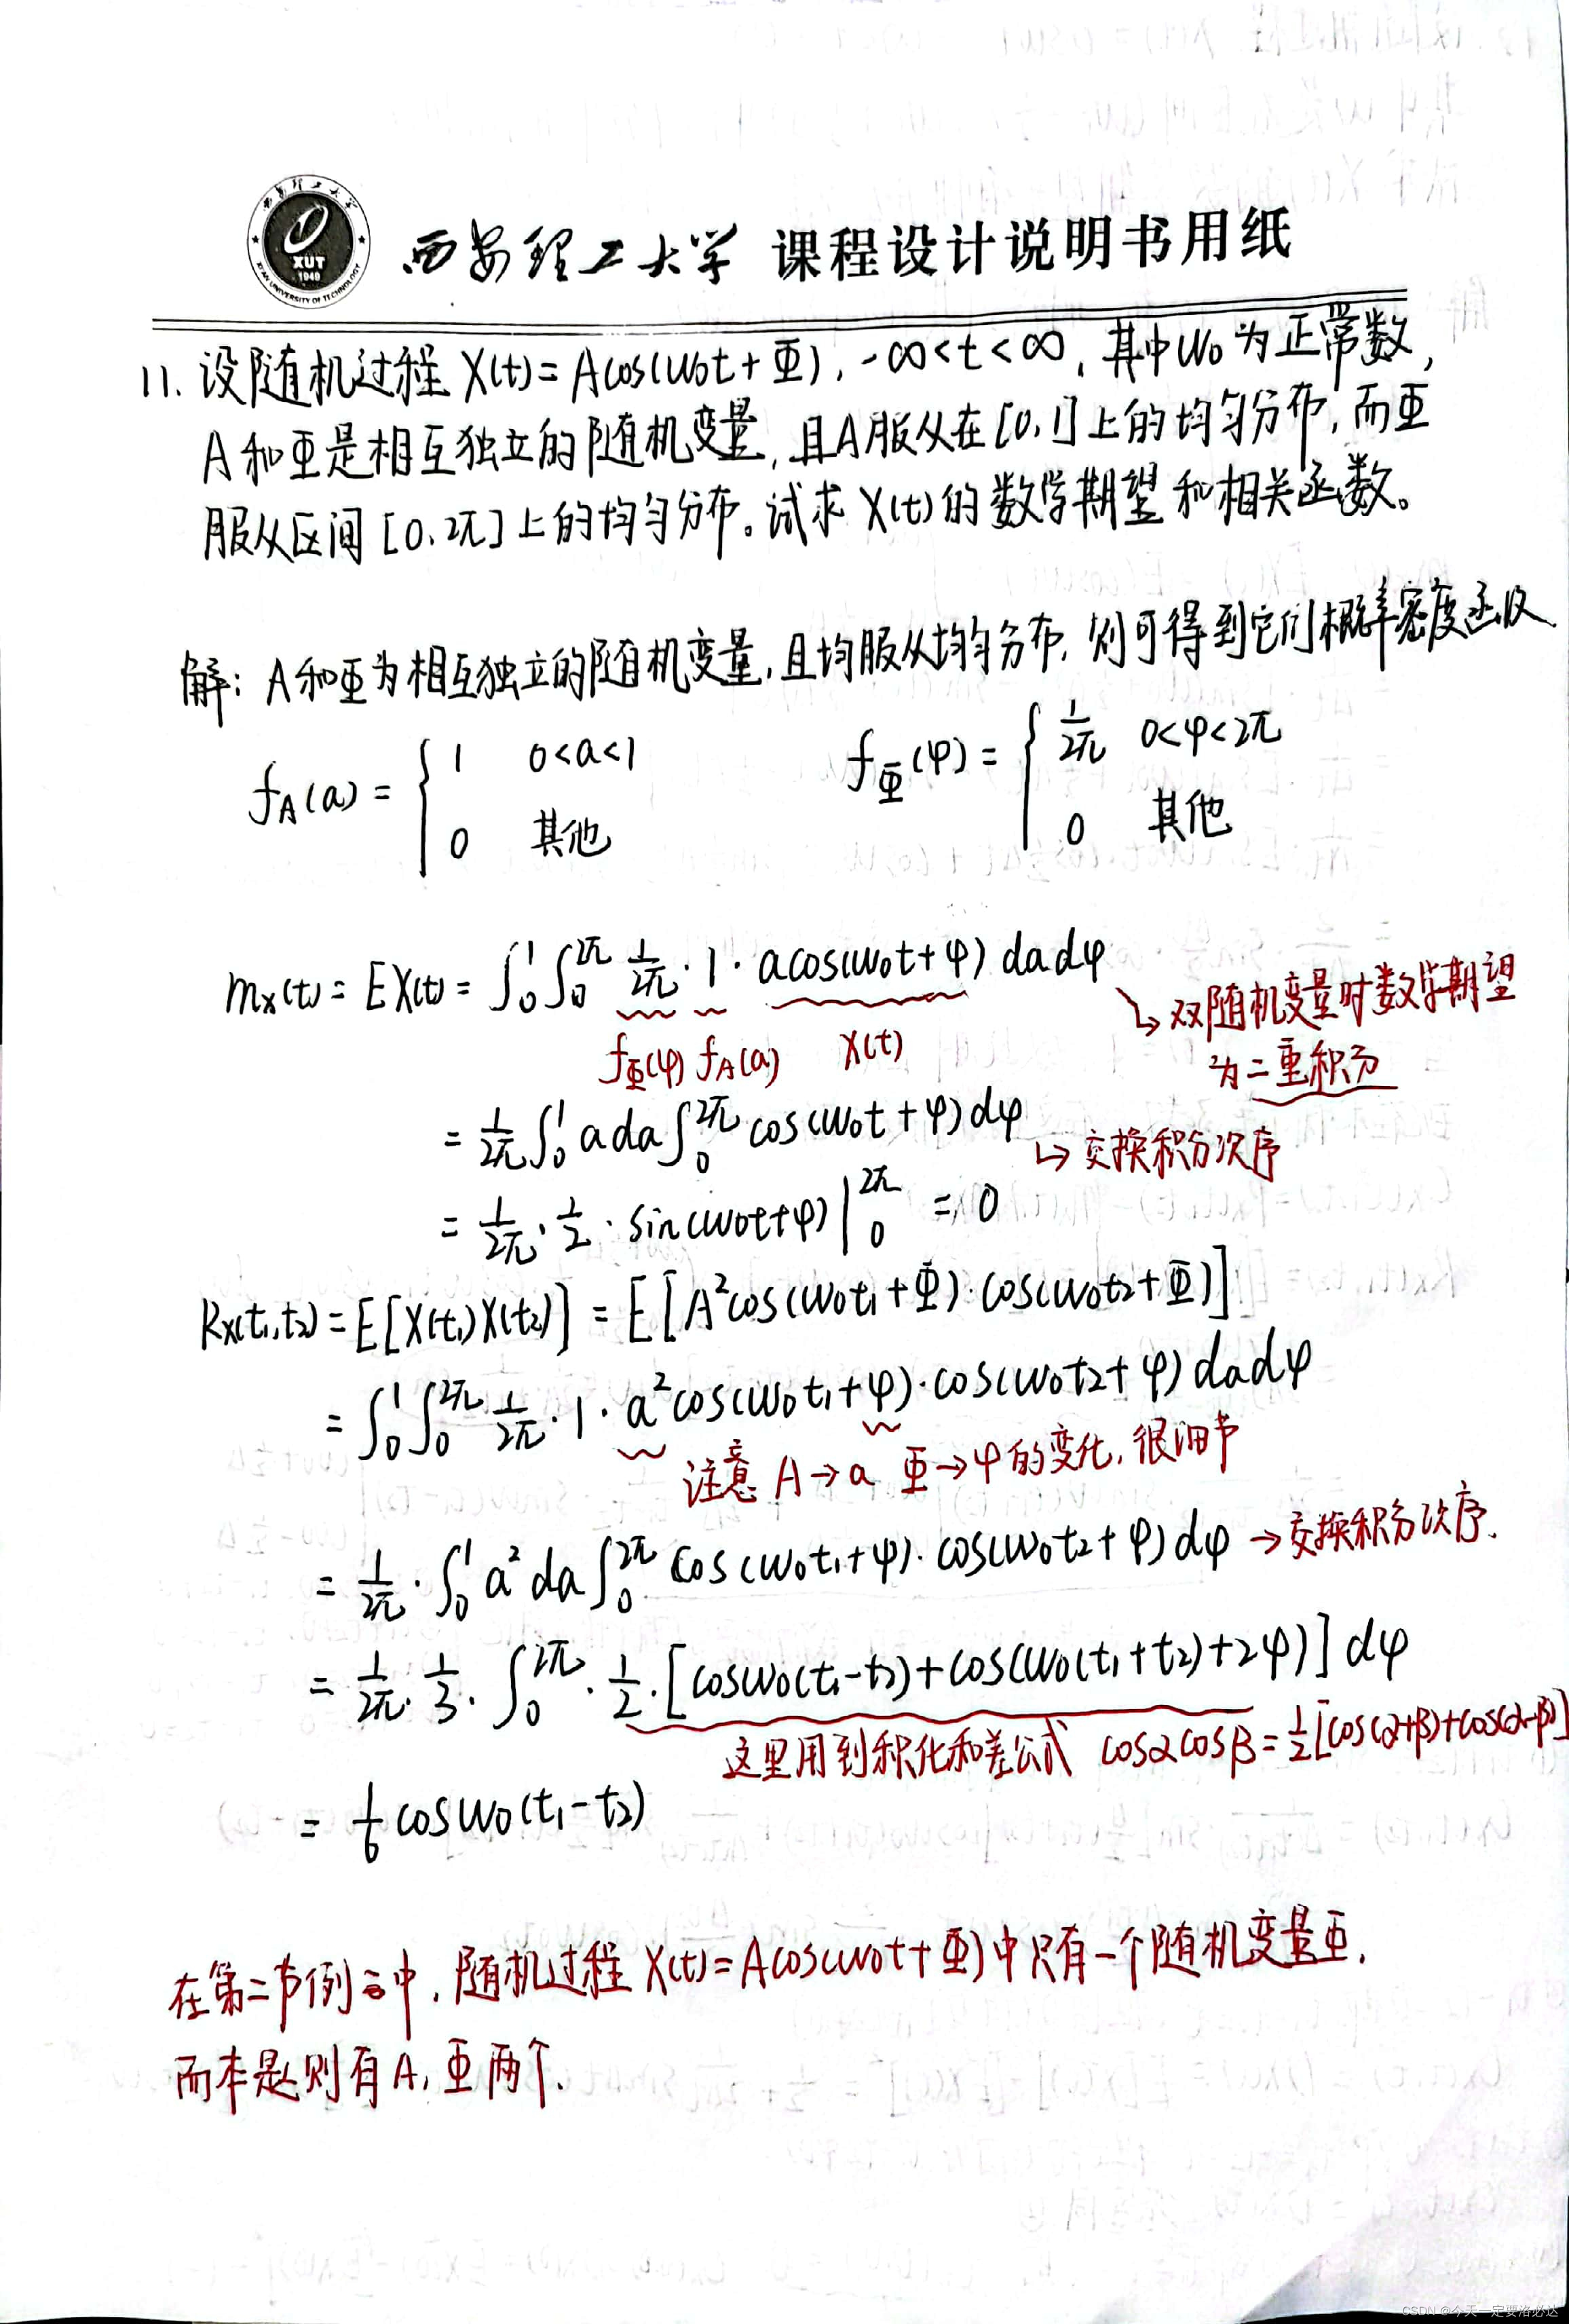 西安理工大学 课程设计说明书用纸
XUT
1949
XI'AN UNIVERSITY OF TECHNOLOGY
11. 设随机过程 X(t)=Acos(ω₀t+Φ), -∞<t<∞, 其中ω₀为正常数,
A和Φ是相互独立的随机变量, 且A服从在[0,1]上的均匀分布, 而Φ
服从区间[0,2π]上的均匀分布。试求X(t)的数学期望和相关函数。
解: A和Φ为相互独立的随机变量, 且均服从均匀分布, 则可得到它们概率密度函数
f_A(a) = { 1 0<a<1
0 其他
f_Φ(φ) = { 1/2π 0<φ<2π
0 其他
m_X(t) = EX(t) = ∫₀¹∫₀^2π 1/2π · 1 · acos(ω₀t+φ) dadφ
↳ 双随机变量时数学期望
为二重积分
f_Φ(φ) f_A(a) X(t)
= 1/2π ∫₀¹ a da ∫₀^2π cos(ω₀t+φ) dφ
↳ 交换积分次序
= 1/2π · 1/2 · sin(ω₀t+φ) |₀^2π = 0
R_X(t₁,t₂) = E[X(t₁)X(t₂)] = E[A²cos(ω₀t₁+Φ)·cos(ω₀t₂+Φ)]
= ∫₀¹∫₀^2π 1/2π · 1 · a²cos(ω₀t₁+φ)·cos(ω₀t₂+φ) dadφ
注意 A→a Φ→φ的变化, 很细节
= 1/2π · ∫₀¹ a² da ∫₀^2π cos(ω₀t₁+φ)·cos(ω₀t₂+φ) dφ → 交换积分次序.
= 1/2π · 1/3 · ∫₀^2π · 1/2 · [cosω₀(t₁-t₂)+cos(ω₀(t₁+t₂)+2φ)] dφ
这里用到积化和差公式 cosαcosβ=1/2[cos(α+β)+cos(α-β)]
= 1/6 cosω₀(t₁-t₂)
在第二节例中, 随机过程 X(t)=Acos(ω₀t+Φ)中只有一个随机变量Φ,
而本题则有A, Φ两个.
CSDN @今天一定要洛必达